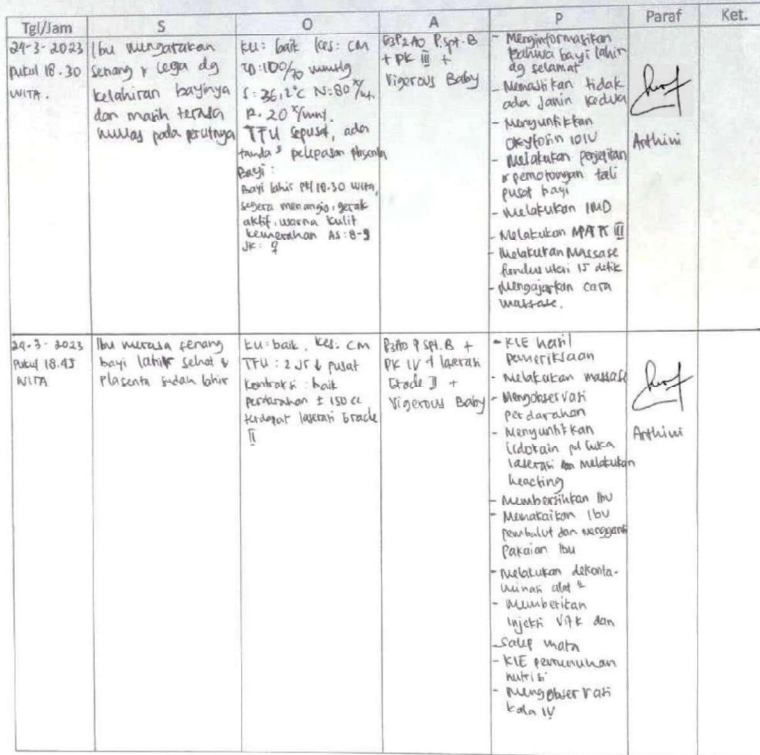 Tgl/Jam S O A P Paraf Ket.
24-3-2023
Pukul 18.30
WITA.
Ibu mengatakan
senang & lega dg
kelahiran bayinya
dan masih terasa
mulas pada perutnya
KU: baik kes: CM
TD: 100/70 mmHg
S: 36,2°C N: 80 x/m.
R. 20 x/mnt.
TFU sepusat, ada
tanda² pelepasan plasenta
Bayi:
Bayi lahir pkl 18.30 wita,
segera menangis, gerak
aktif, warna kulit
kemerahan AS: 8-9
JK: ♀
G3P2A0 P.spt.B
+ PK III +
Vigerous Baby
- Menginformasikan
Bahwa bayi lahir
dg selamat
- Memastikan tidak
ada Janin kedua
- Menyuntikkan
Oksytosin 10 IU
- Melakukan penjepitan
& pemotongan tali
pusat bayi
- Melakukan IMD
- Melakukan MAK III
- Melakukan Massase
fundus uteri 15 detik
- Mengajarkan cara
massase.
Arthini
24-3-2023
Pukul 18.45
WITA
Ibu merasa senang
bayi lahir sehat &
Plasenta sudah lahir
KU: baik, kes: CM
TFU: 2 Jr ↓ pusat
kontraksi: baik
perdarahan ± 150 cc
terdapat laserasi Grade
II
P3A0 P spt.B +
PK IV + laserasi
Grade II +
Vigerous Baby
- KIE hasil
pemeriksaan
- Melakukan massase
- Mengobservasi
perdarahan
- Menyuntikkan
lidokain pd luka
laserasi dan melakukan
heacting
- Membersihkan Ibu
- Memakaikan Ibu
pembalut dan mengganti
Pakaian Ibu
- Melakukan dekonta-
minasi alat²
- Memberikan
Injeksi Vit K dan
salep mata
- KIE pemenuhan
nutrisi
- Mengobservasi
kala IV
Arthini